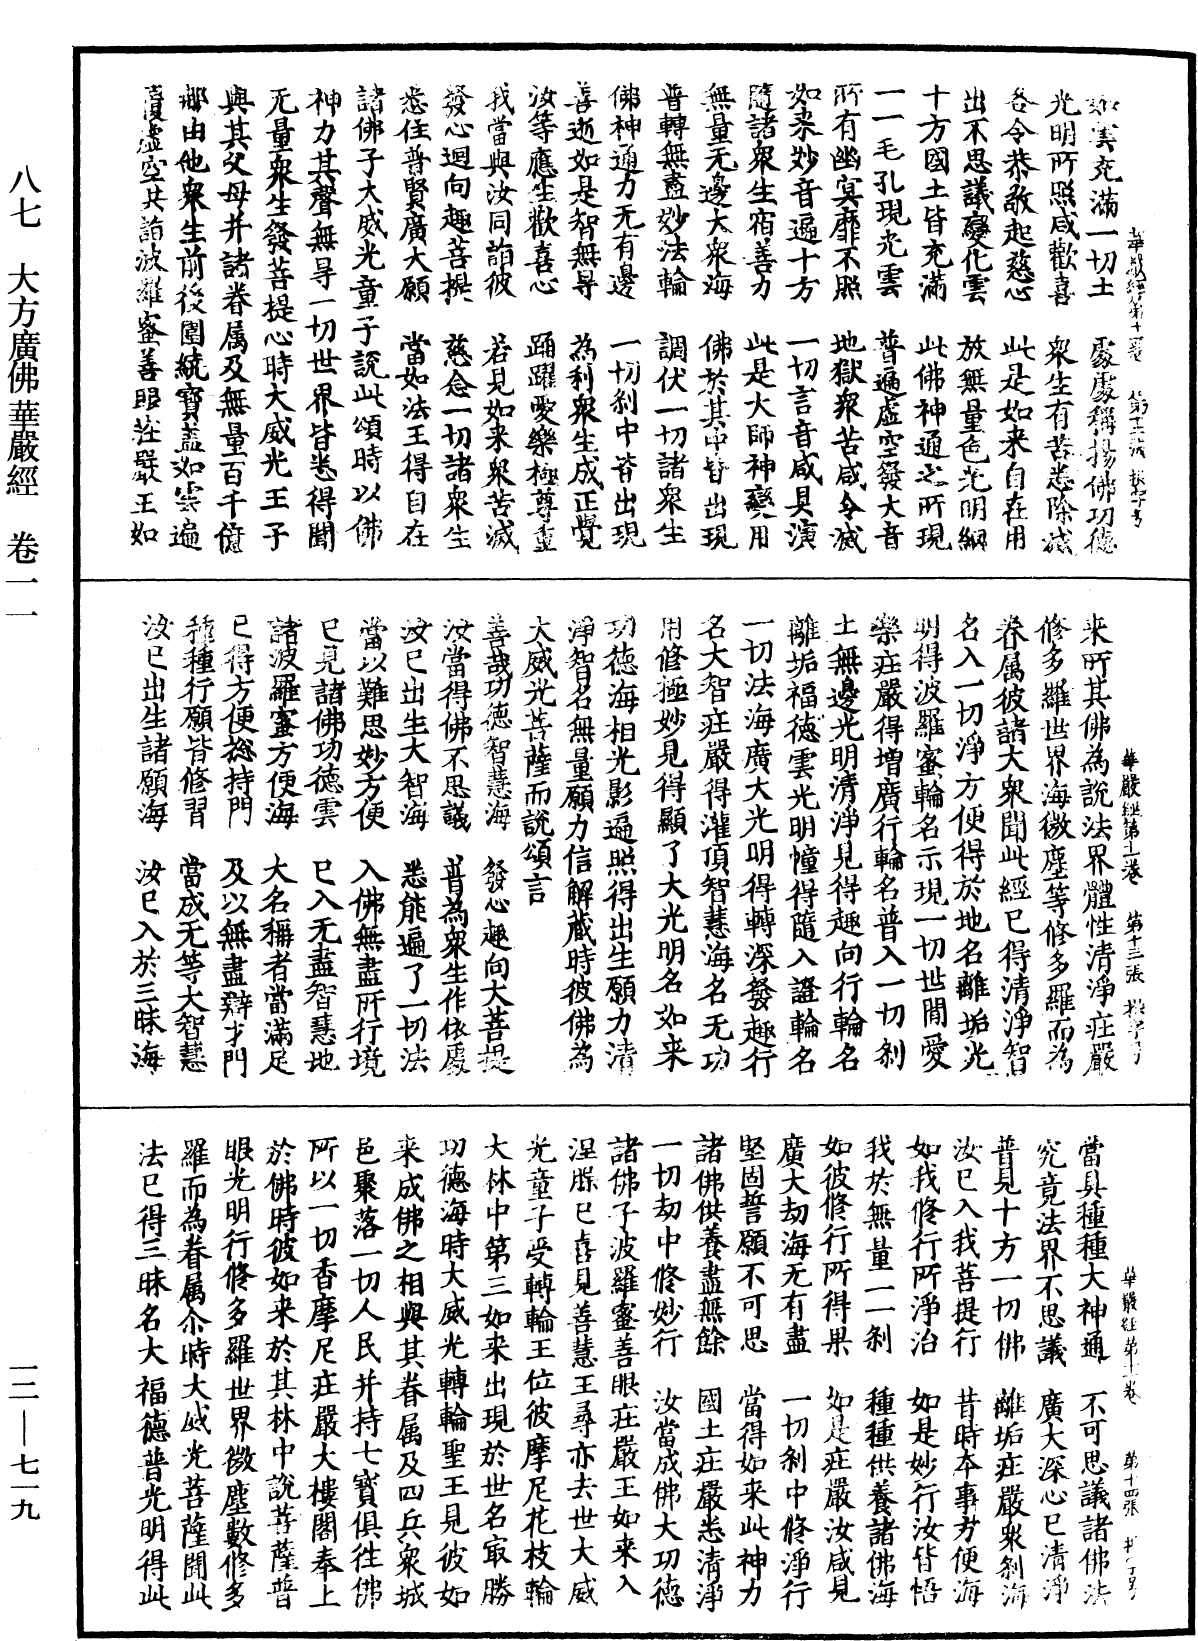 八七　大方廣佛華嚴經　卷一一
一二—七一九
如雲充滿一切土　處處稱揚佛功德
光明所照咸歡喜　衆生有苦悉除滅
各令恭敬起慈心　此是如来自在用
出不思議變化雲　放無量色光明網
十方國土皆充滿　此佛神通之所現
一一毛孔現光雲　普遍虛空發大音
所有幽冥靡不照　地獄衆苦咸令滅
如来妙音遍十方　一切言音咸具演
隨諸衆生宿善力　此是大師神變用
無量无邊大衆海　佛於其中皆出現
普轉無盡妙法輪　調伏一切諸衆生
佛神通力无有邊　一切刹中皆出現
善逝如是智無㝵　為利衆生成正覺
汝等應生歡喜心　踊躍愛樂極尊重
我當與汝同詣彼　若見如来衆苦滅
發心迴向趣菩提　慈念一切諸衆生
悉住普賢廣大願　當如法王得自在
諸佛子大威光童子說此頌時以佛
神力其聲無㝵一切世界皆悉得聞
无量衆生發菩提心時大威光王子
與其父母并諸眷属及無量百千億
那由他衆生前後圍繞寶蓋如雲遍
覆虛空共詣波羅蜜善眼莊嚴王如
華嚴經第十一卷　第十三張
来所其佛為說法界體性清淨莊嚴
修多羅世界海微塵等修多羅而為
眷属彼諸大衆聞此經已得清淨智
名入一切淨方便得於地名離垢光
明得波羅蜜輪名示現一切世間愛
樂莊嚴得增廣行輪名普入一切刹
土無邊光明清淨見得趣向行輪名
離垢福德雲光明幢得隨入證輪名
一切法海廣大光明得轉深發趣行
名大智莊嚴得灌頂智慧海名无功
用修極妙見得顯了大光明名如来
功德海相光影遍照得出生願力清
淨智名無量願力信解藏時彼佛為
大威光菩薩而說頌言
善哉功德智慧海　發心趣向大菩提
汝當得佛不思議　普為衆生作依處
汝已出生大智海　悉能遍了一切法
當以難思妙方便　入佛無盡所行境
已見諸佛功德雲　已入无盡智慧地
諸波羅蜜方便海　大名稱者當滿足
已得方便捴持門　及以無盡辯才門
種種行願皆修習　當成无等大智慧
汝已出生諸願海　汝已入於三昧海
華嚴經第十一卷　第十四張
當具種種大神通　不可思議諸佛法
究竟法界不思議　廣大深心已清淨
普見十方一切佛　離垢莊嚴衆刹海
汝已入我菩提行　昔時本事方便海
如我修行所淨治　如是妙行汝皆悟
我於無量一一刹　種種供養諸佛海
如彼修行所得果　如是莊嚴汝咸見
廣大劫海无有盡　一切刹中修淨行
堅固誓願不可思　當得如来此神力
諸佛供養盡無餘　國土莊嚴悉清淨
一切劫中修妙行　汝當成佛大功德
諸佛子波羅蜜善眼莊嚴王如来入
涅槃已喜見善慧王尋亦去世大威
光童子受轉輪王位彼摩尼花枝輪
大林中第三如来出現於世名冣勝
功德海時大威光轉輪聖王見彼如
来成佛之相與其眷属及四兵衆城
邑聚落一切人民并持七寶俱往佛
所以一切香摩尼莊嚴大樓閣奉上
於佛時彼如来於其林中說菩薩普
眼光明行修多羅世界微塵數修多
羅而為眷属尒時大威光菩薩聞此
法已得三昧名大福德普光明得此